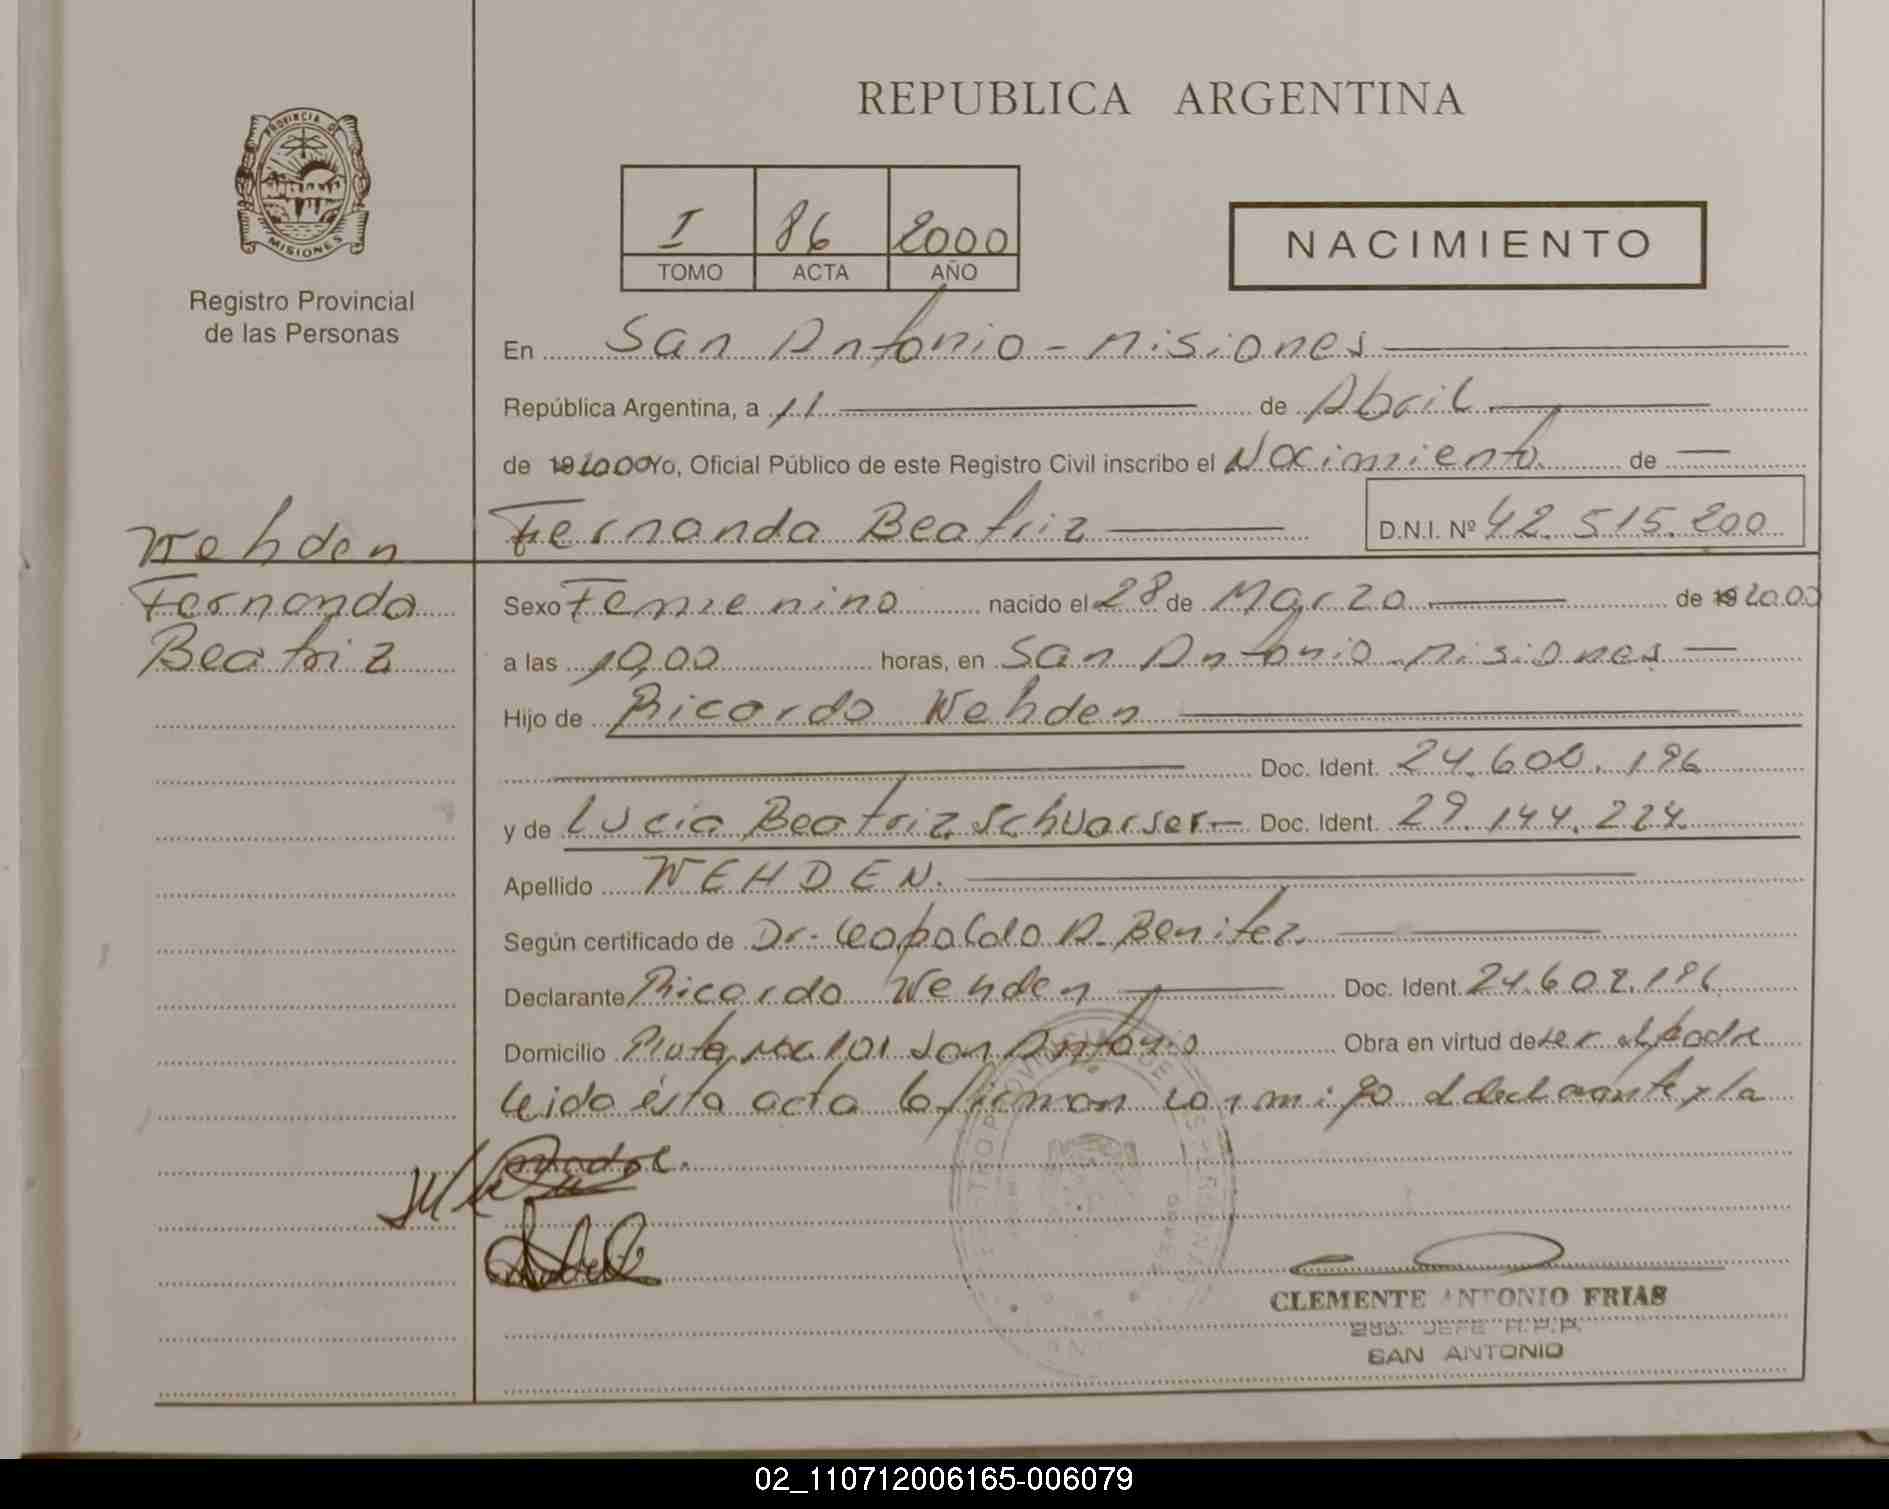 REPUBLICA ARGENTINA
PROVINCIA DE
MISIONES
Registro Provincial
de las Personas
I 86 2000
TOMO ACTA AÑO
NACIMIENTO
En San Antonio - Misiones
República Argentina, a 11 de Abril
de 192000 Yo, Oficial Público de este Registro Civil inscribo el Nacimiento de
Fernanda Beatriz D.N.I. Nº 42.515.200
Wehden
Fernanda
Beatriz
Sexo Femenino nacido el 28 de Marzo de 192000
a las 10,00 horas, en San Antonio Misiones
Hijo de Ricardo Wehden
Doc. Ident. 24.600.196
y de Lucia Beatriz Schuarser Doc. Ident. 29.144.224
Apellido WEHDEN.
Según certificado de Dr. Leopoldo A. Benitez.
Declarante Ricardo Wehden Doc. Ident. 24.602.196
Domicilio San Antonio Obra en virtud de ser el padre
Leida ésta acta la firman conmigo el declarante y la
madre.
CLEMENTE ANTONIO FRIAS
JEFE R.P.P.
SAN ANTONIO
02_110712006165-006079